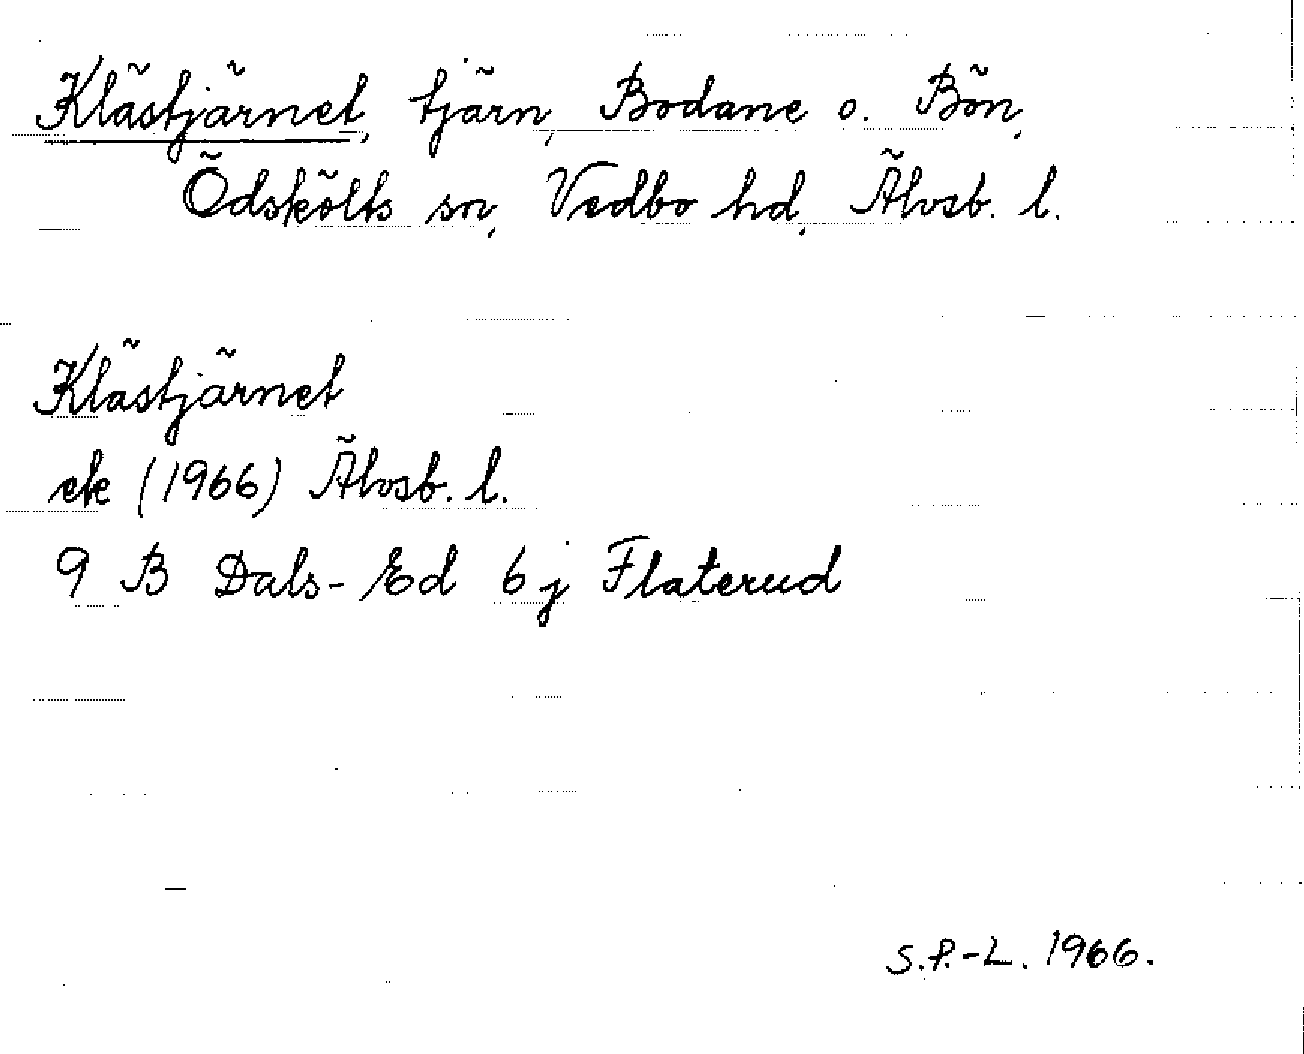 Klästjärnet, tjärn, Bodane o. Bön,
Ödskölts sn, Vedbo hd, Älvsb. l.
Klästjärnet
ek (1966) Älvsb. l.
9 B Dals-Ed 6j Flaterud
S.P.-L. 1966.